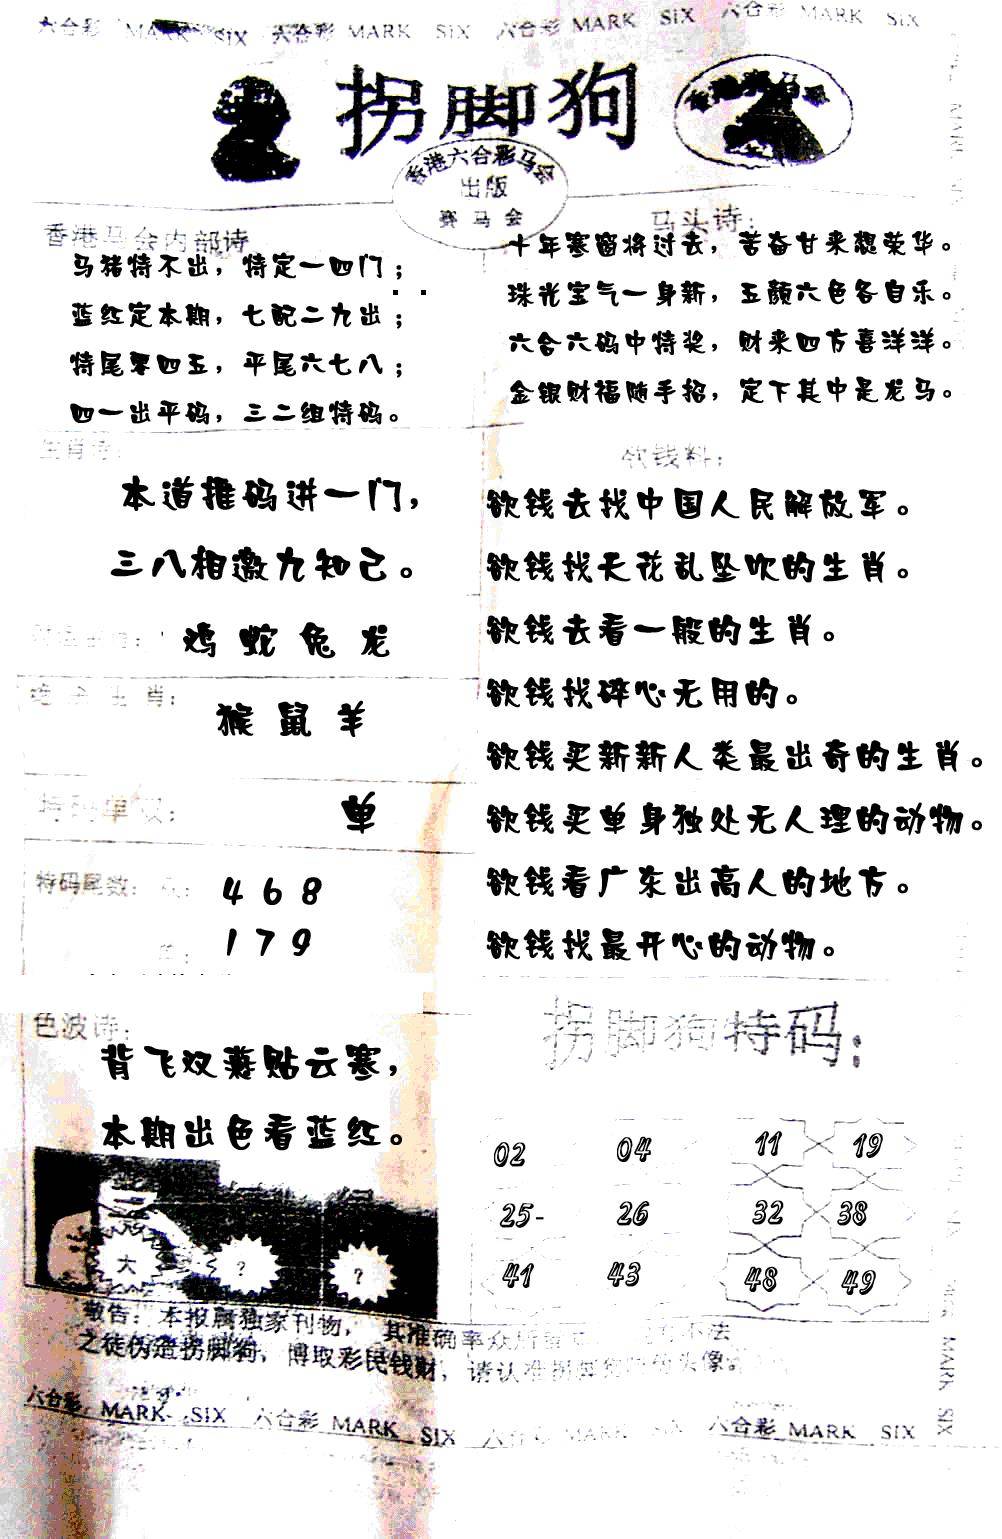 六合彩 MARK SIX 六合彩 MARK SIX 六合彩 MARK SIX 六合彩 MARK SIX
拐脚狗
香港六合彩马会
出版
赛马会
香港马会内部诗
马猪特不出，特定一四门；
蓝红定本期，七配二九出；
特尾零四五，平尾六七八；
四一出平码，三二组特码。
马头诗：
十年寒窗将过去，苦奋甘来想荣华。
珠光宝气一身新，五颜六色各自乐。
六合六码中特奖，财来四方喜洋洋。
金银财福随手招，定下其中是龙马。
生肖诗：
本道推码进一门，
三八相邀九知己。
鸡 蛇 兔 龙
生肖：
猴 鼠 羊
特码单双：
单
特码尾数：
4 6 8
1 7 9
欲钱料：
欲钱去找中国人民解放军。
欲钱找天花乱坠吹的生肖。
欲钱去看一般的生肖。
欲钱找碎心无用的。
欲钱买新新人类最出奇的生肖。
欲钱买单身独处无人理的动物。
欲钱看广东出高人的地方。
欲钱找最开心的动物。
色波诗：
背飞双燕贴云寒，
本期出色看蓝红。
大 ? ?
拐脚狗特码：
02 04 11 19
25- 26 32 38
41 43 48 49
敬告：本报属独家刊物，其准确率众所 不法
之徒伪造拐脚狗，博取彩民钱财，请认准拐脚狗 头像。
六合彩 MARK SIX 六合彩 MARK SIX 六合彩 MARK SIX 六合彩 MARK SIX
MARK SIX